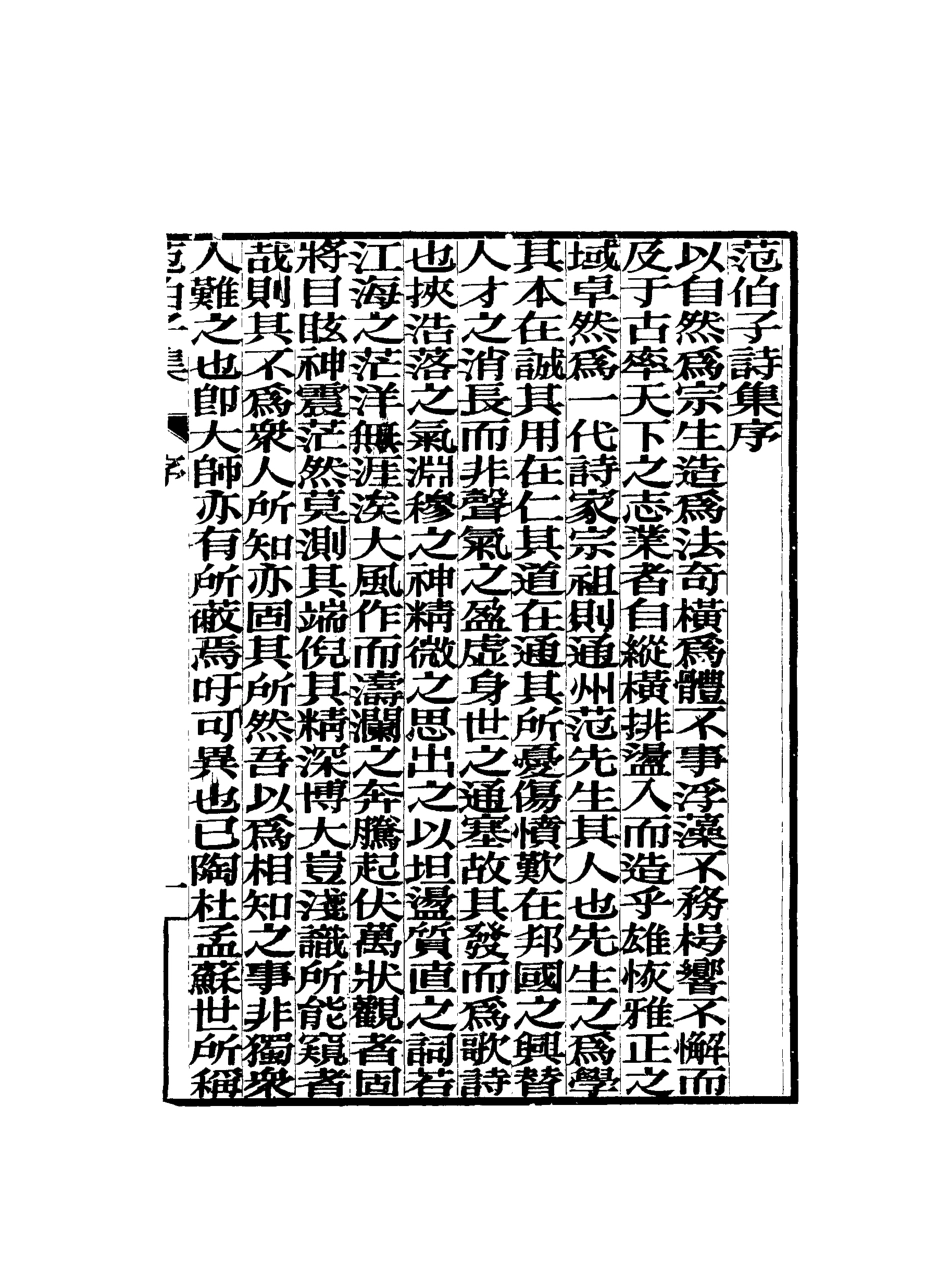 范伯子詩集序
以自然爲宗生造爲法奇橫爲體不事浮藻不務枵響不懈而
及于古率天下之志業者自縱橫排盪入而造乎雄恢雅正之
域卓然爲一代詩家宗祖則通州范先生其人也先生之爲學
其本在誠其用在仁其道在通其所憂傷憤歎在邦國之興替
人才之消長而非聲氣之盈虛身世之通塞故其發而爲歌詩
也挾浩落之氣淵穆之神精微之思出之以坦盪質直之詞若
江海之茫洋無涯涘大風作而濤瀾之奔騰起伏萬狀觀者固
將目眩神震茫然莫測其端倪其精深博大豈淺識所能窺者
哉則其不爲衆人所知亦固其所然吾以爲相知之事非獨衆
人難之也卽大師亦有所蔽焉吁可異也已陶杜孟蘇世所稱
范伯子集 序 一